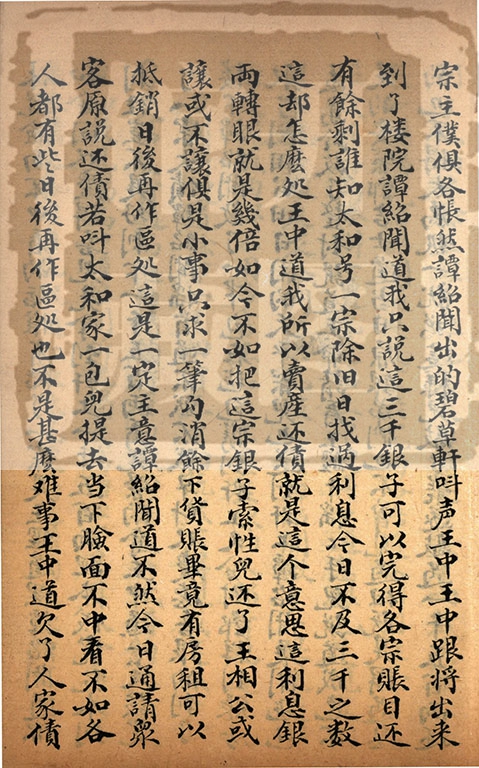 宗主僕俱各悵然譚紹聞出的碧草軒呌声王中王中跟将出来
到了楼院譚紹聞道我只說這三千銀子可以完得各宗賬目还
有餘剩誰知太和号一宗除旧日找过利息今日不及三千之数
這却怎庅处王中道我所以賣產还債就是這个意思這利息銀
両轉眼就是幾倍如今不如把這宗銀子索性兒还了王相公或
讓或不讓俱是小事只求一筆勾消餘下貸賬畢竟有房租可以
抵銷日後再作區処這是一定主意譚紹聞道不然今日通請眾
客原說还債若呌太和家一包兒提去当下臉面不中看不如各
人都有些日後再作區処也不是甚庅难事王中道欠了人家債